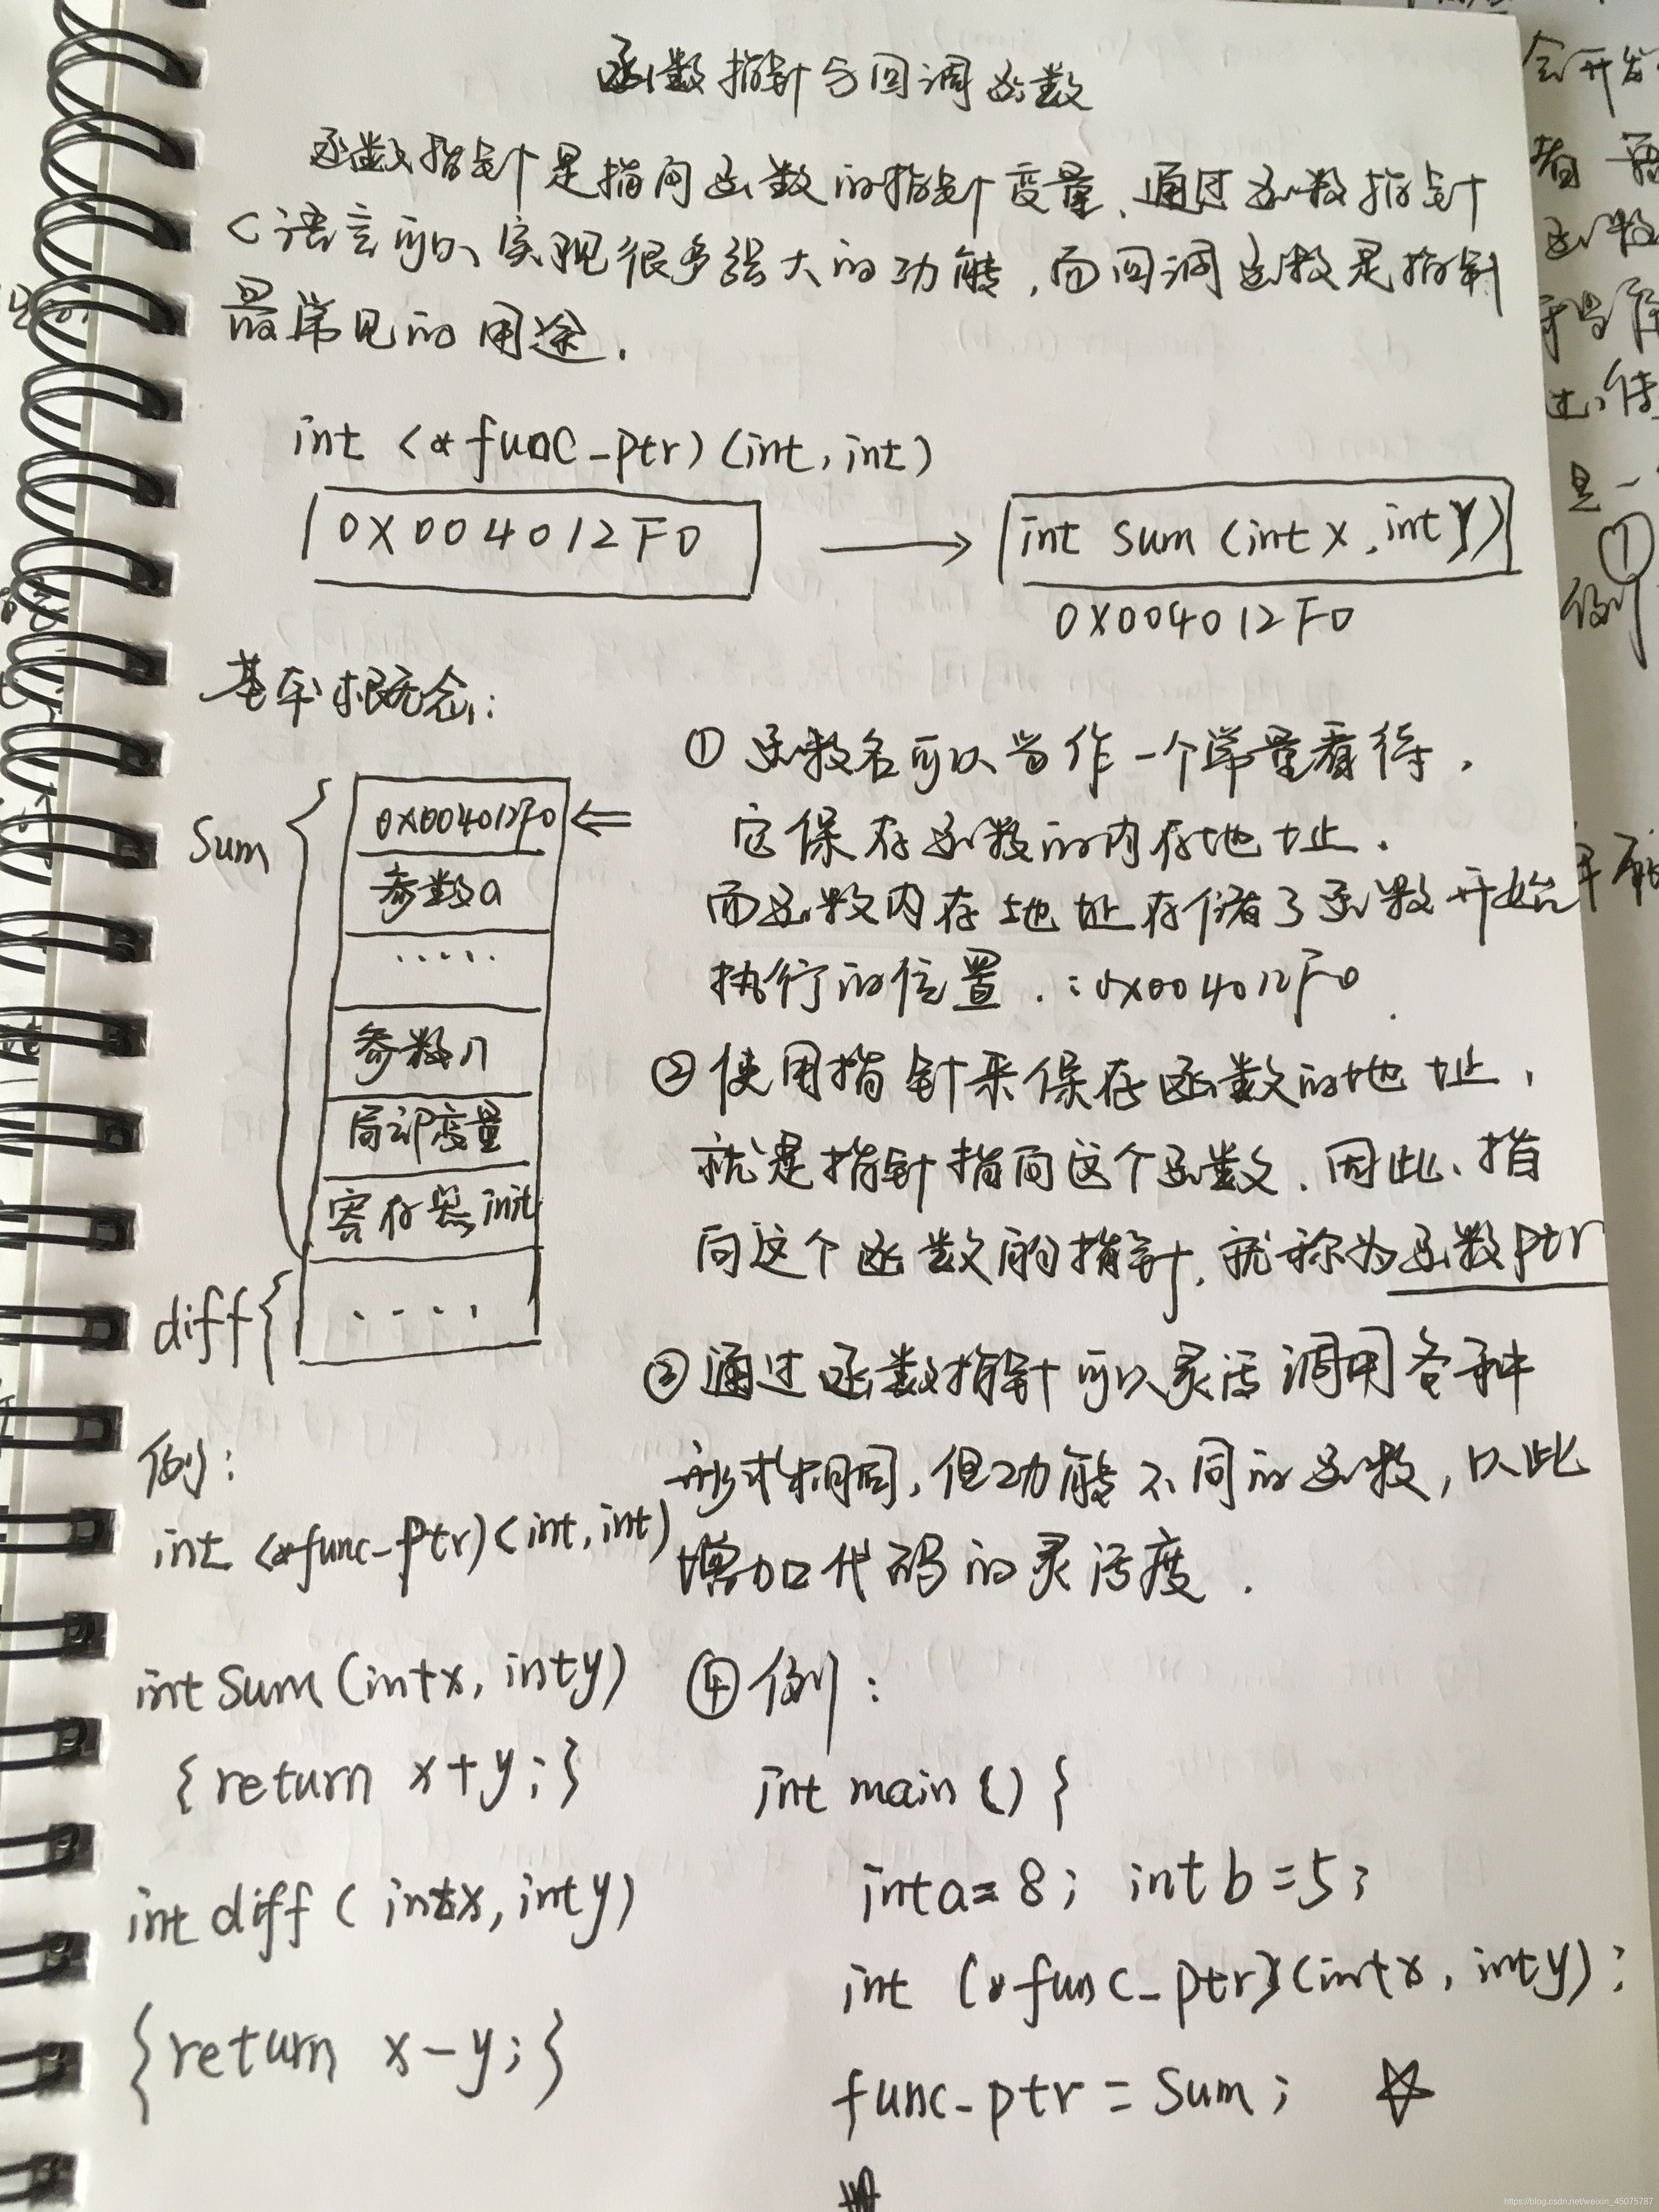 函数指针与回调函数
函数指针是指向函数的指针变量、通过函数指针
C语言可以实现很多强大的功能,而回调函数是指针
最常见的用途.
int (*func_ptr)(int,int)
0X004012F0
int sum (int x,int y)
0X004012F0
基本概念:
sum
0X004012F0
参数a
.....
参数n
局部变量
寄存器init
diff
....
① 函数名可以当作一个常量看待,
它保存函数的内存地址.
而函数内存地址存储了函数开始
执行的位置.:0x004012F0
② 使用指针来保存函数的地址,
就是指针指向这个函数.因此、指
向这个函数的指针,就称为函数ptr
③ 通过函数指针可以灵活调用各种
形式相同,但功能不同的函数,以此
增加代码的灵活度.
例:
int (*func_ptr)(int,int)
int sum (int x, int y)
{return x+y;}
int diff (int x, int y)
{return x-y;}
④ 例:
int main () {
int a=8; int b=5;
int (*func_ptr)(int x, int y);
func_ptr = sum;
会开发
函数
是一
①
例
https://blog.csdn.net/weixin_45075787